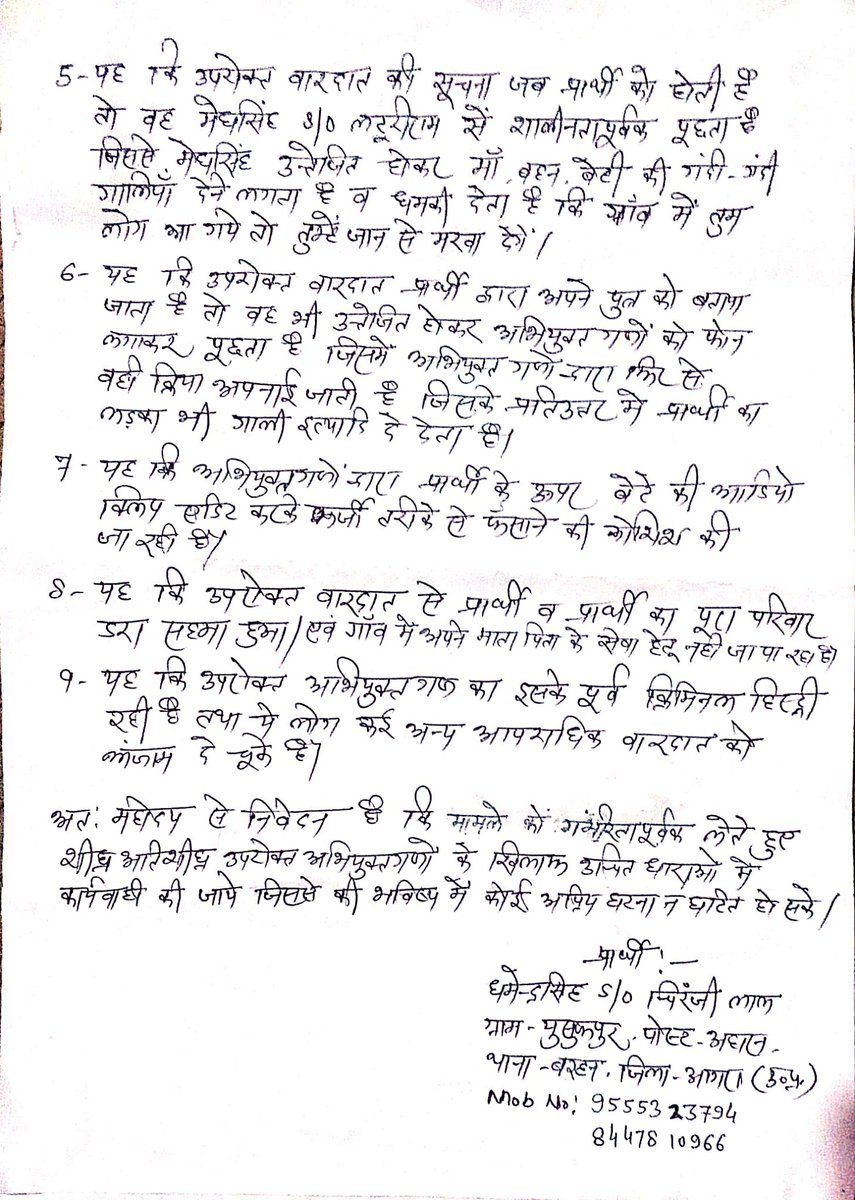 5- यह कि उपरोक्त वारदात की सूचना जब प्रार्थी को होती है
तो वह मेघसिंह S/O लटूरीराम से शालीनतापूर्वक पूछता है
जिससे मेघसिंह उत्तेजित होकर माँ, बहन, बेटी की गंदी-गंदी
गालियाँ देने लगता है व धमकी देता है कि गाँव में तुम
लोग आ गये तो तुम्हें जान से मरवा देगें।
6- यह कि उपरोक्त वारदात प्रार्थी द्वारा अपने पुत्र को बताया
जाता है तो वह भी उत्तेजित होकर अभियुक्तगणों को फोन
लगाकर पूछता है जिसमें अभियुक्तगणों द्वारा फिर से
वही क्रिया अपनाई जाती है जिसके प्रतिउत्तर में प्रार्थी का
लड़का भी गाली इत्यादि दे देता है।
7- यह कि अभियुक्तगणों द्वारा प्रार्थी के ऊपर बेटे की आडियो
क्लिप एडिट करके फर्जी तरीके से फँसाने की कोशिश की
जा रही है।
8- यह कि उपरोक्त वारदात से प्रार्थी व प्रार्थी का पूरा परिवार
डरा सहमा हुआ। एवं गाँव में अपने माता पिता के सेवा हेतू नही जा पा रहा है।
9- यह कि उपरोक्त अभियुक्तगण का इसके पूर्व क्रिमिनल हिस्ट्री
रही है तथा ये लोग कई अन्य आपराधिक वारदात को
अंजाम दे चूके है।
अतः महोदय से निवेदन है कि मामले को गंभीरतापूर्वक लेते हुए
शीघ्र अतिशीघ्र उपरोक्त अभियुक्तगणों के खिलाफ उचित धाराओ में
कार्यवाही की जाये जिससे की भविष्य में कोई अप्रिय घटना न घटित हो सके।
प्रार्थी:-
धर्मेन्द्रसिंह S/O चिरंजी लाल
ग्राम-युसुफपुर, पोस्ट-अहारन,
थाना-बरहन, जिला-आगरा (उ०प्र०)
Mob No: 95553 23794
84478 10966